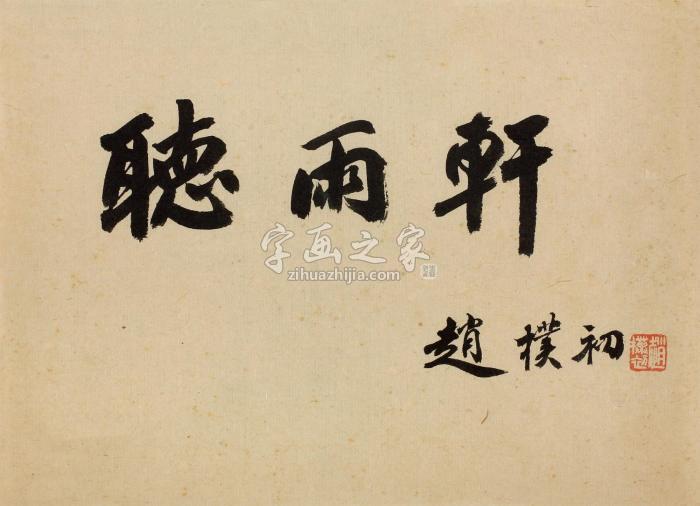 聽雨軒
字画之家
zihuazhijia.com
趙樸初